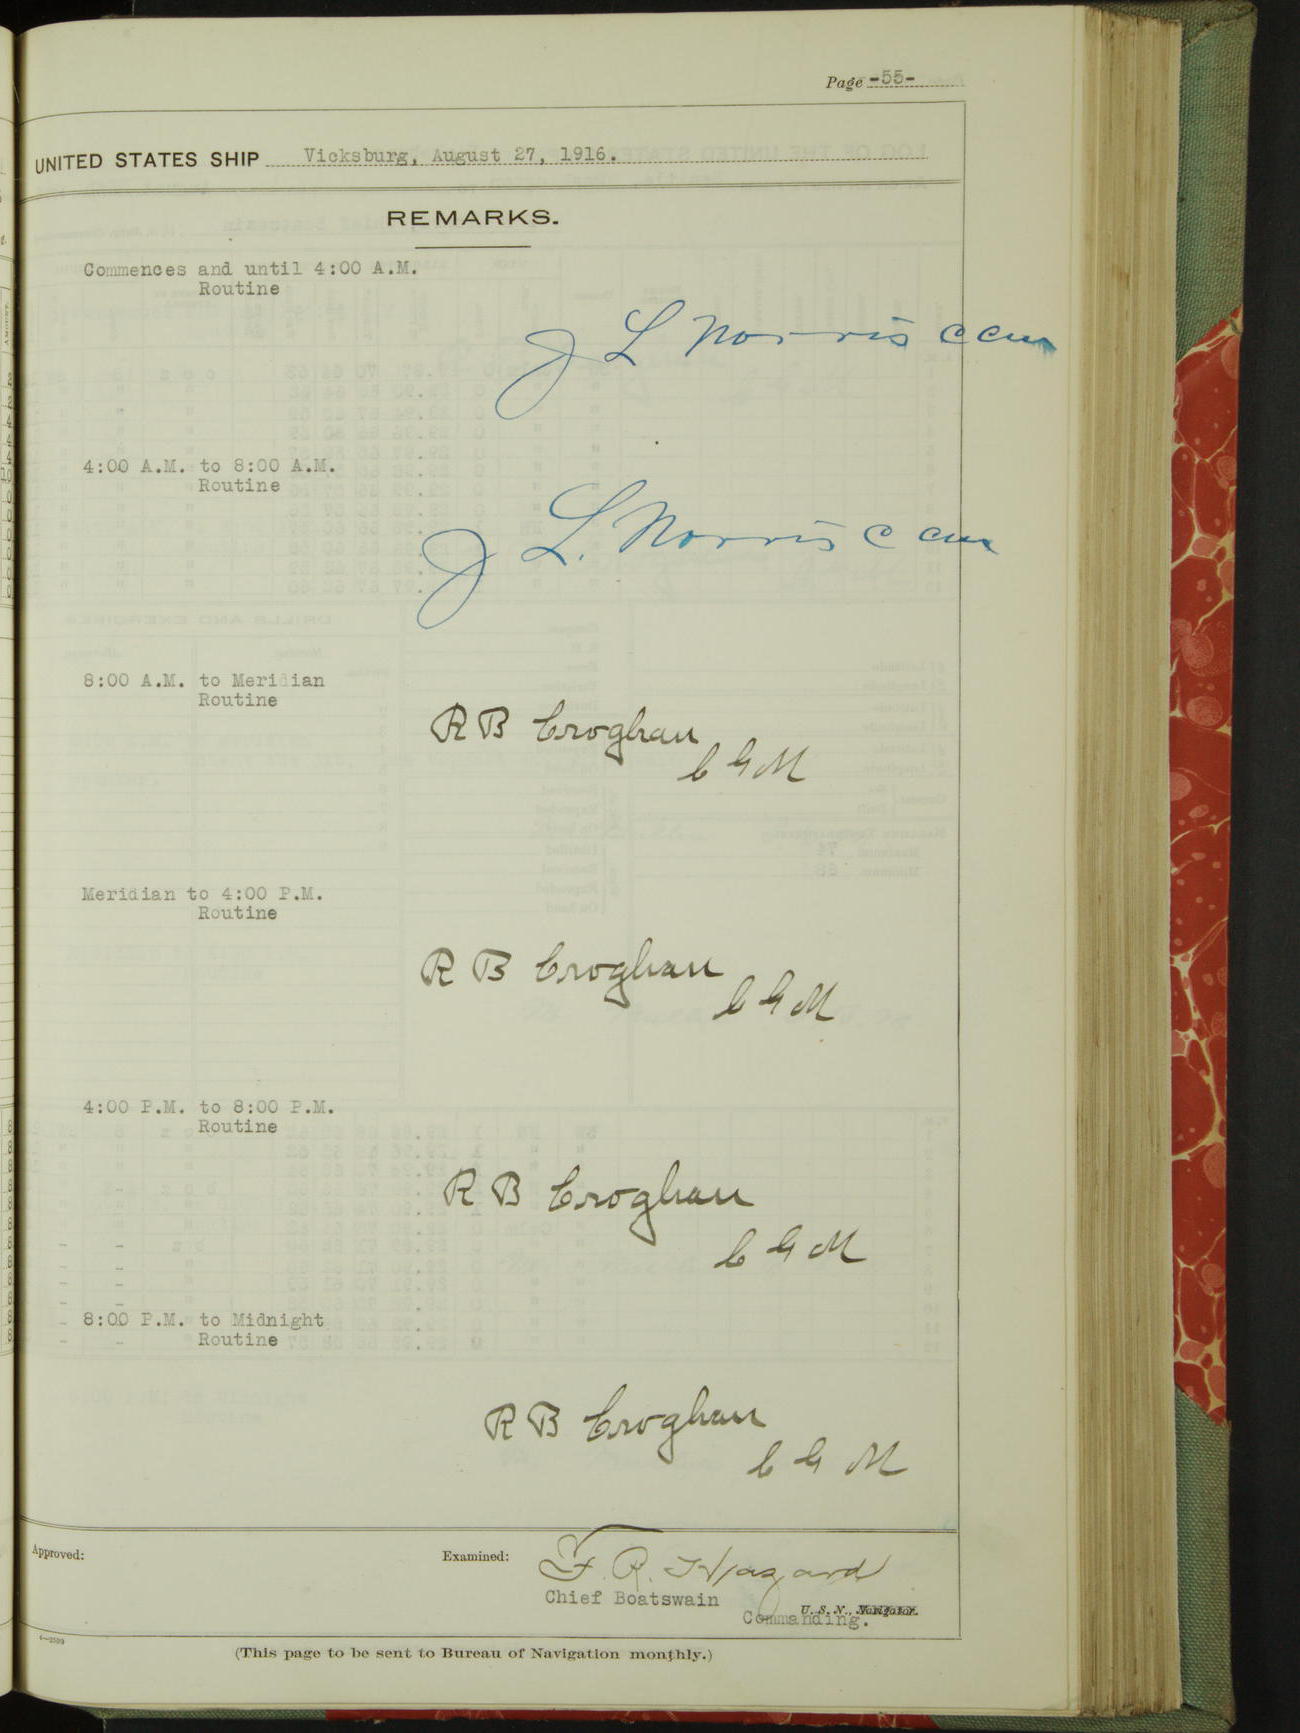 Page -55-
UNITED STATES SHIP Vicksburg, August 27, 1916.
REMARKS.
Commences and until 4:00 A.M.
Routine
J L Norris CCM
4:00 A.M. to 8:00 A.M.
Routine
J L. Norris C CM
8:00 A.M. to Meridian
Routine
R B Croghan
C G M
Meridian to 4:00 P.M.
Routine
R B Croghan
C G M
4:00 P.M. to 8:00 P.M.
Routine
R B Croghan
C G M
8:00 P.M. to Midnight
Routine
R B Croghan
C G M
Approved:
Examined: F. R. Hazard
Chief Boatswain
U. S. N., Navigator.
Commanding.
(This page to be sent to Bureau of Navigation monthly.)